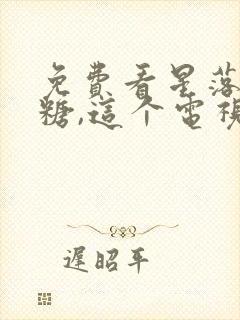 免費看星落
糖,這个電視
遲昭平